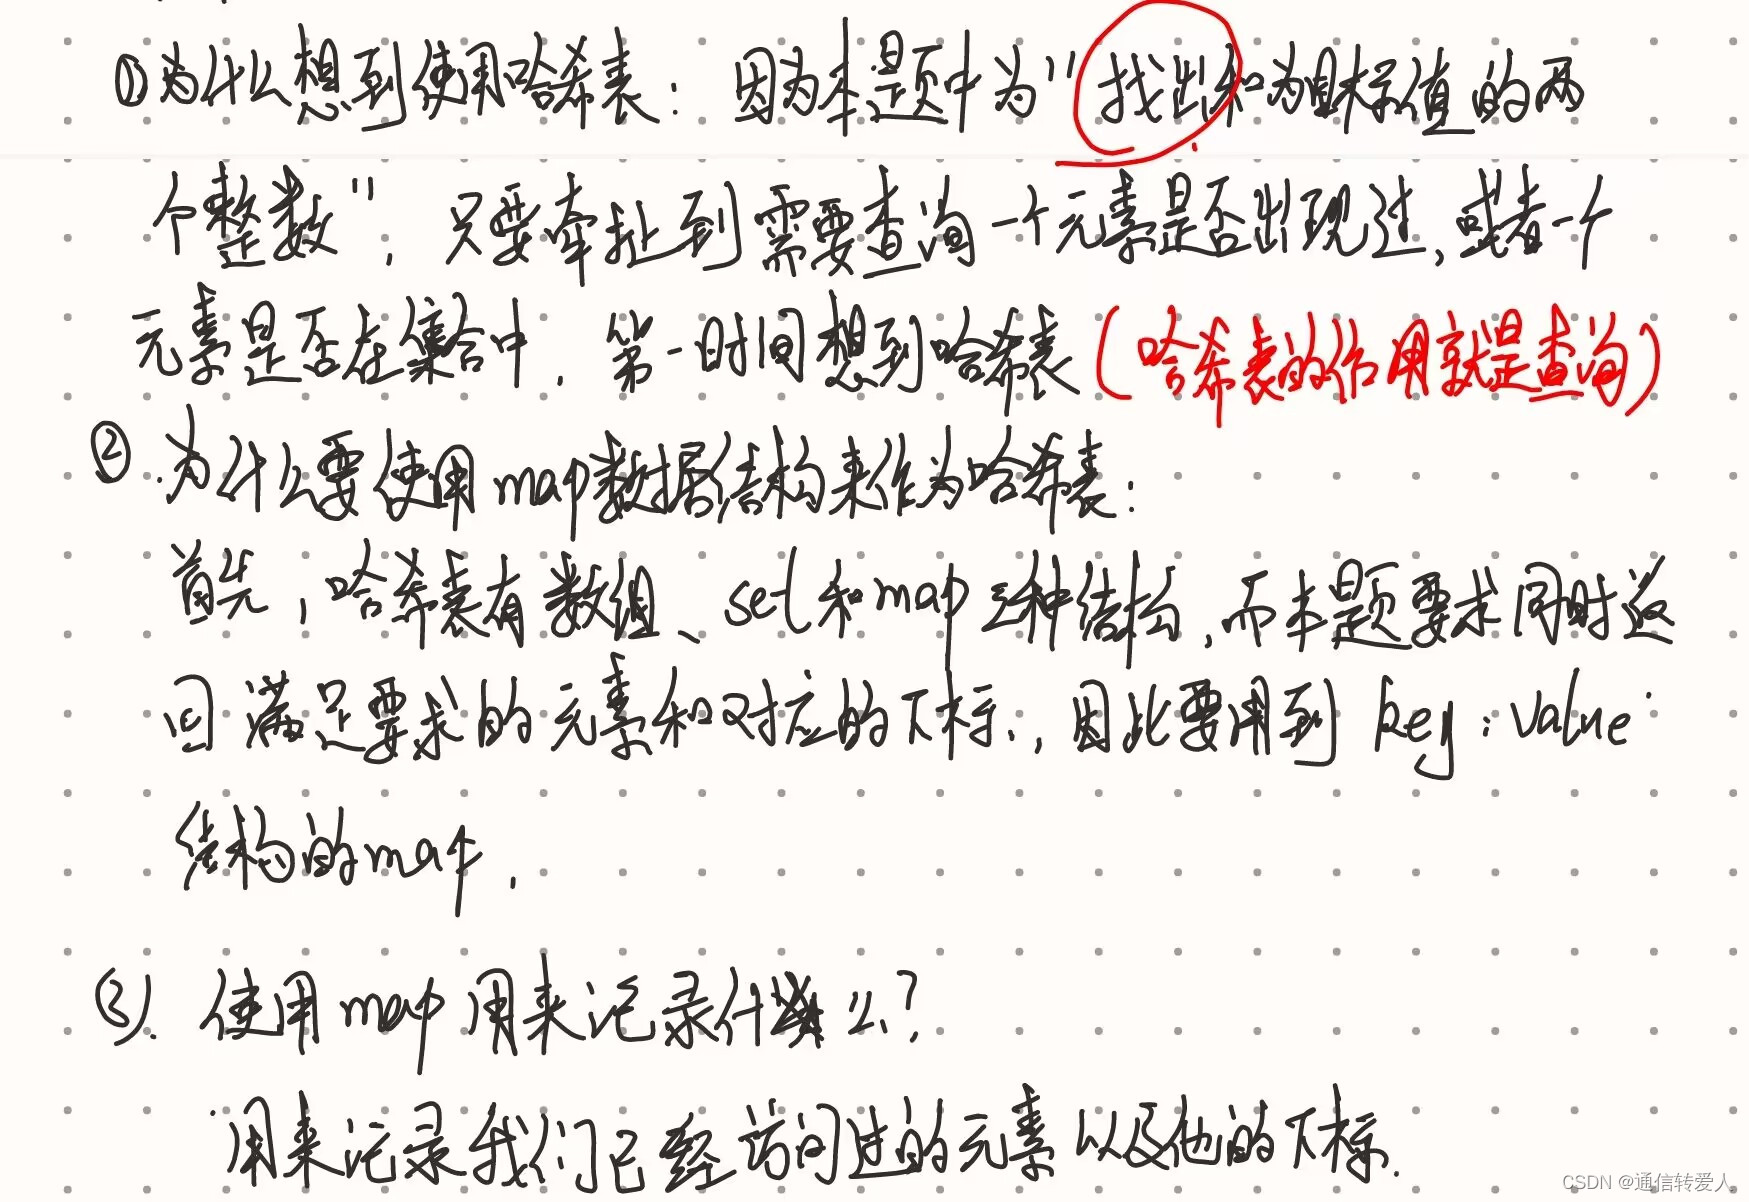 ①为什么想到使用哈希表：因为本题中为"找出和为目标值的两
个整数"，只要牵扯到需要查询一个元素是否出现过，或者一个
元素是否在集合中，第一时间想到哈希表（哈希表的作用就是查询）
②.为什么要使用map数据结构来作为哈希表：
首先，哈希表有数组、set和map三种结构，而本题要求同时返
回满足要求的元素和对应的下标，因此要用到key:value
结构的map，
(3).使用map用来记录什么？
用来记录我们已经访问过的元素以及他的下标.
CSDN @通信转爱人